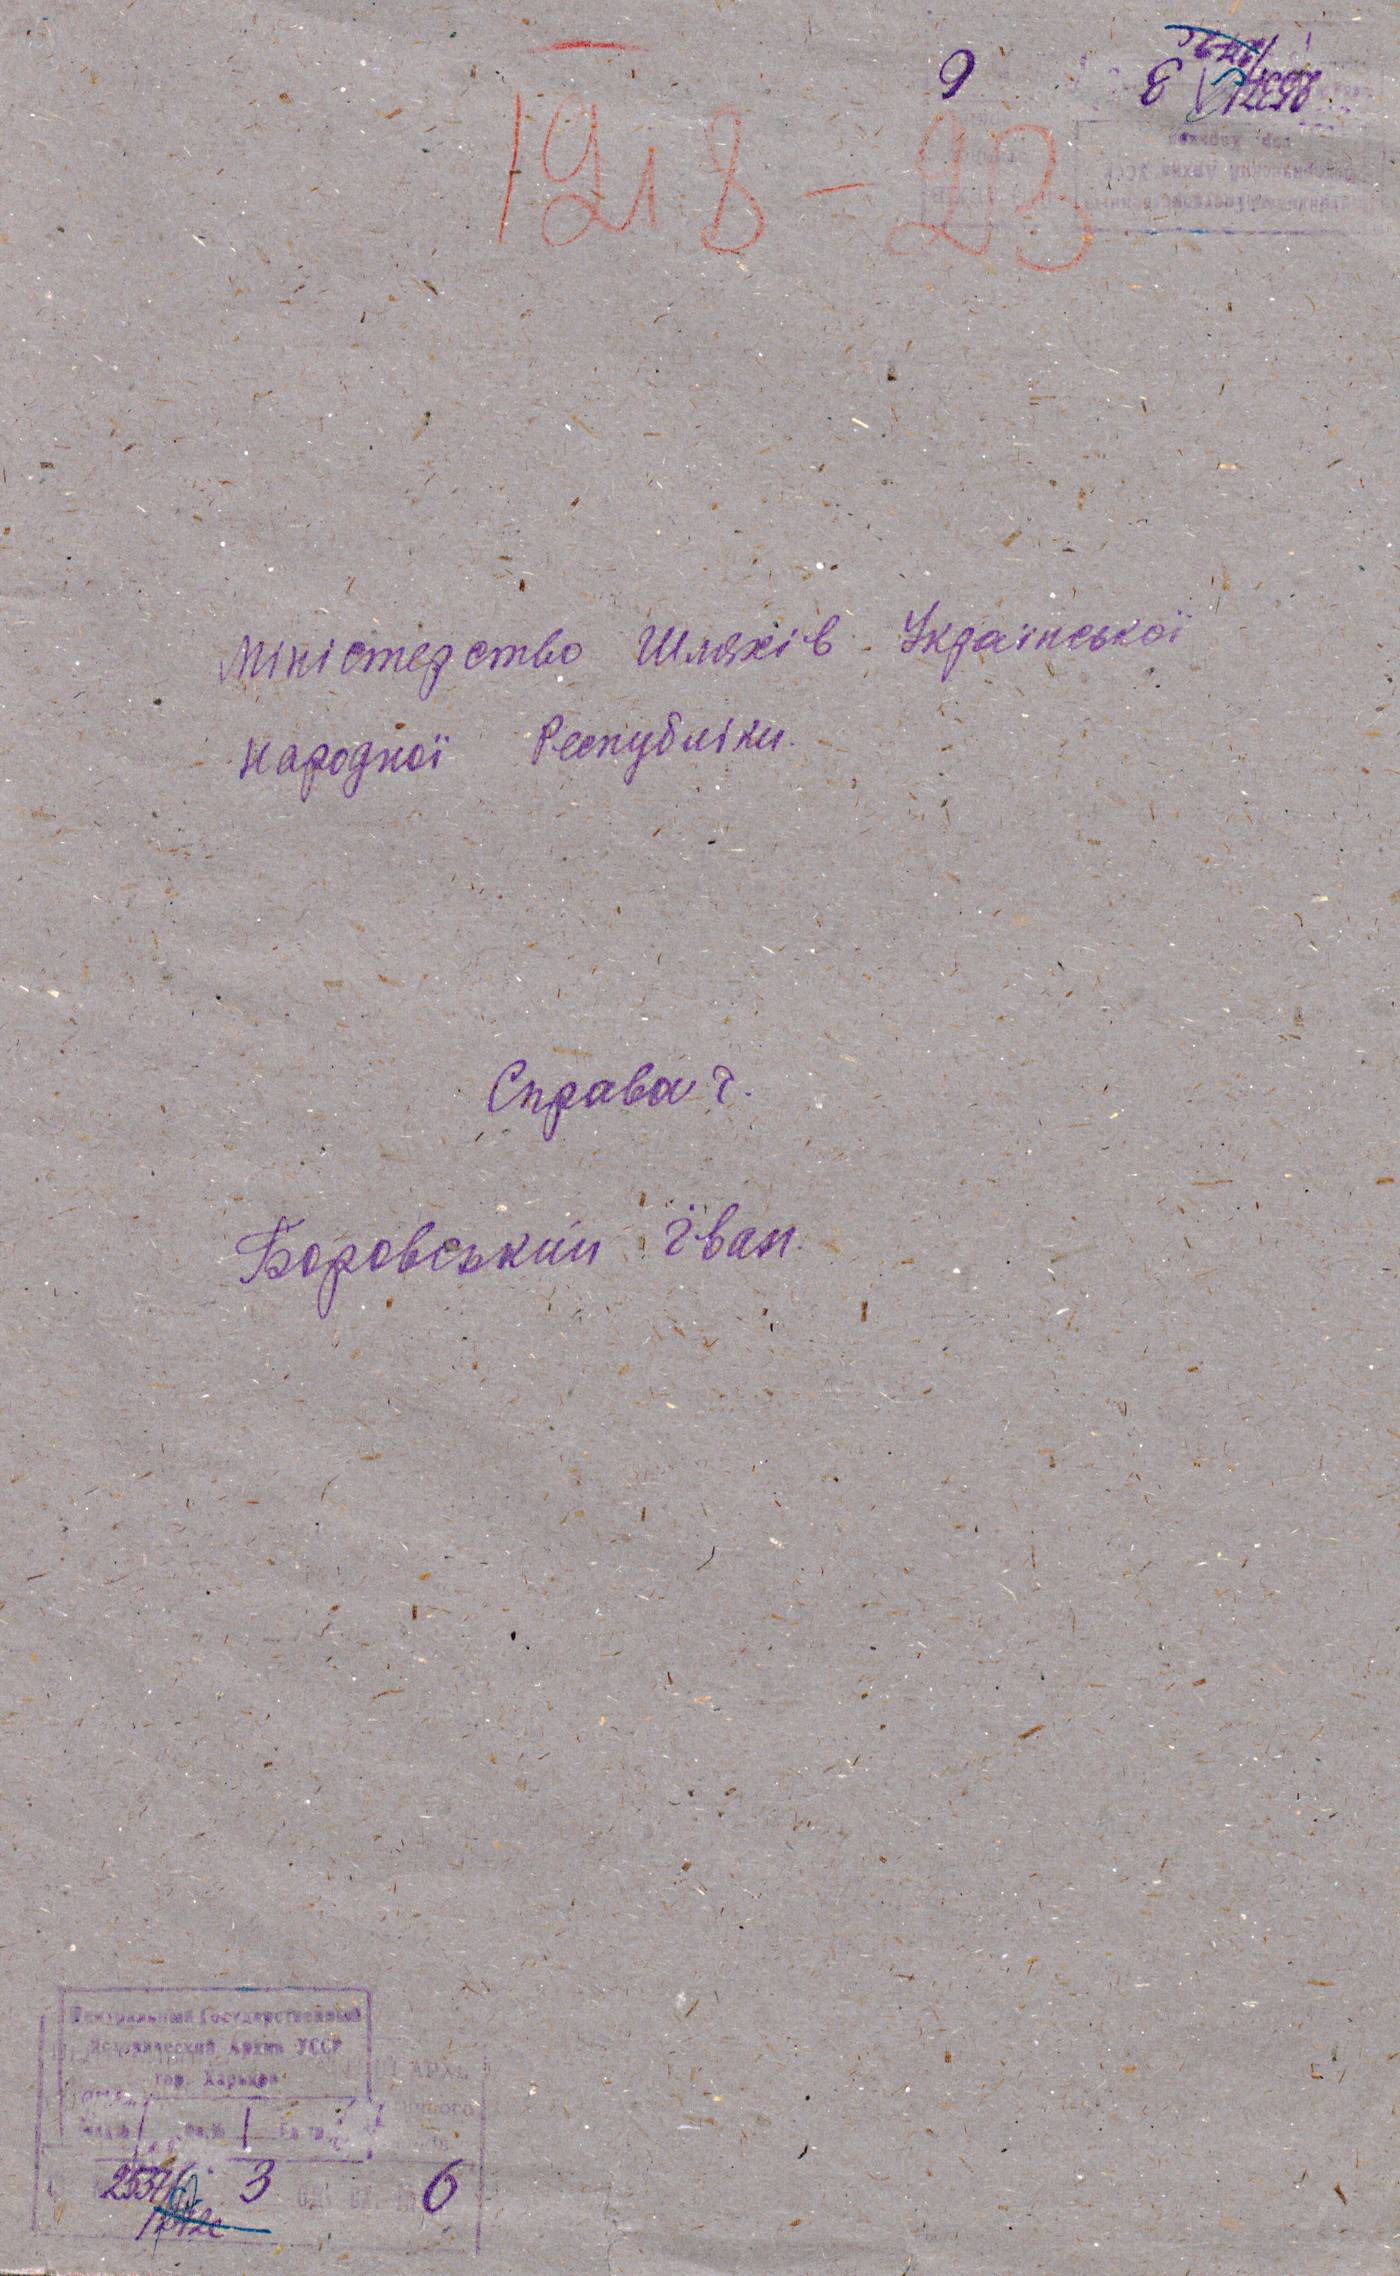 1918-23
Міністерство Шляхів Української
Народної Республіки.
Справа ч.
Боровський Іван.
Центральный Государственный
Исторический Архив УССР
гор. Харьков
3 6